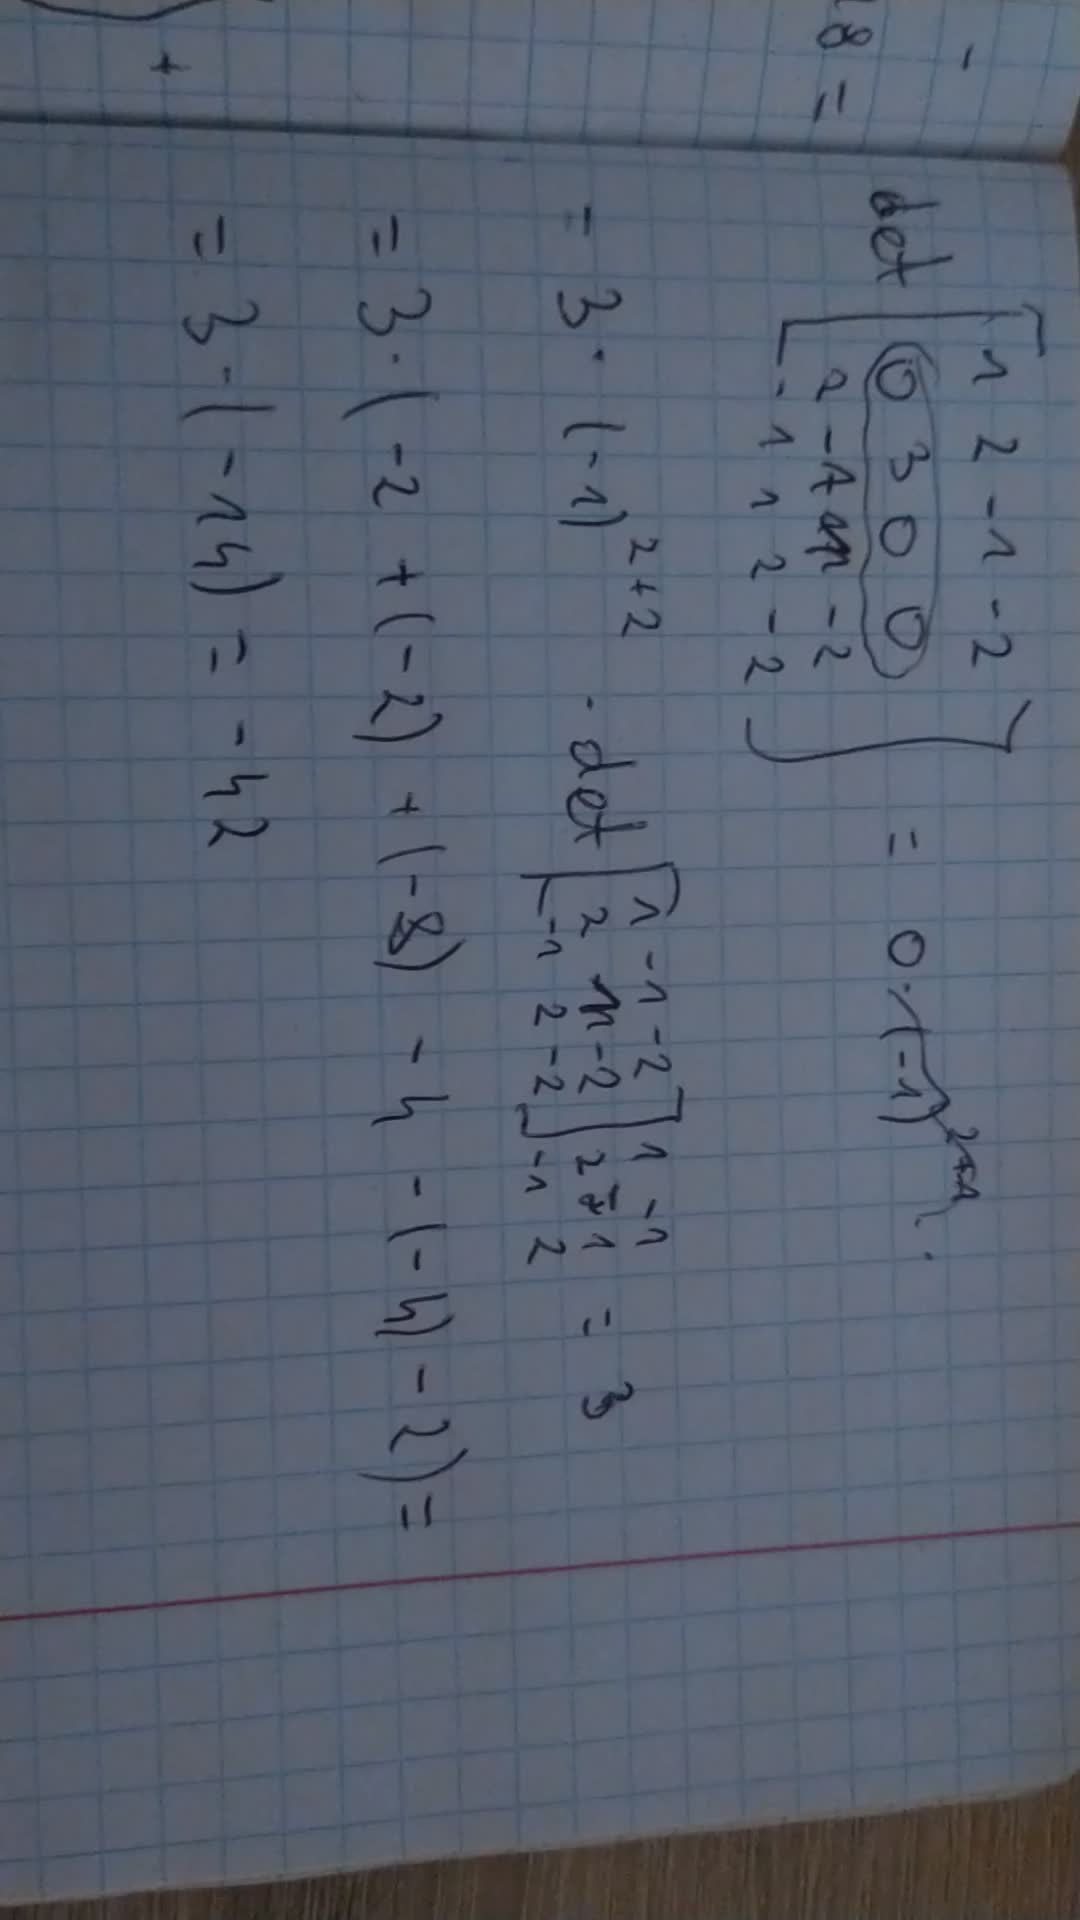 -
18 =
+
det [ 1 2 -1 -2
0 3 0 0
2 -1 1 -2
-1 1 2 -2 ] = 0 · (-1)²⁺¹ ·
= 3 · (-1)²⁺² · det [ 1 -1 -2 ] 1 -1
[ 2 1 -2 ] 2 1 = 3
[ -1 2 -2 ] -1 2
= 3 · ( -2 + (-2) + (-8) - 4 - (-4) - 2 ) =
= 3 · ( -14 ) = -42